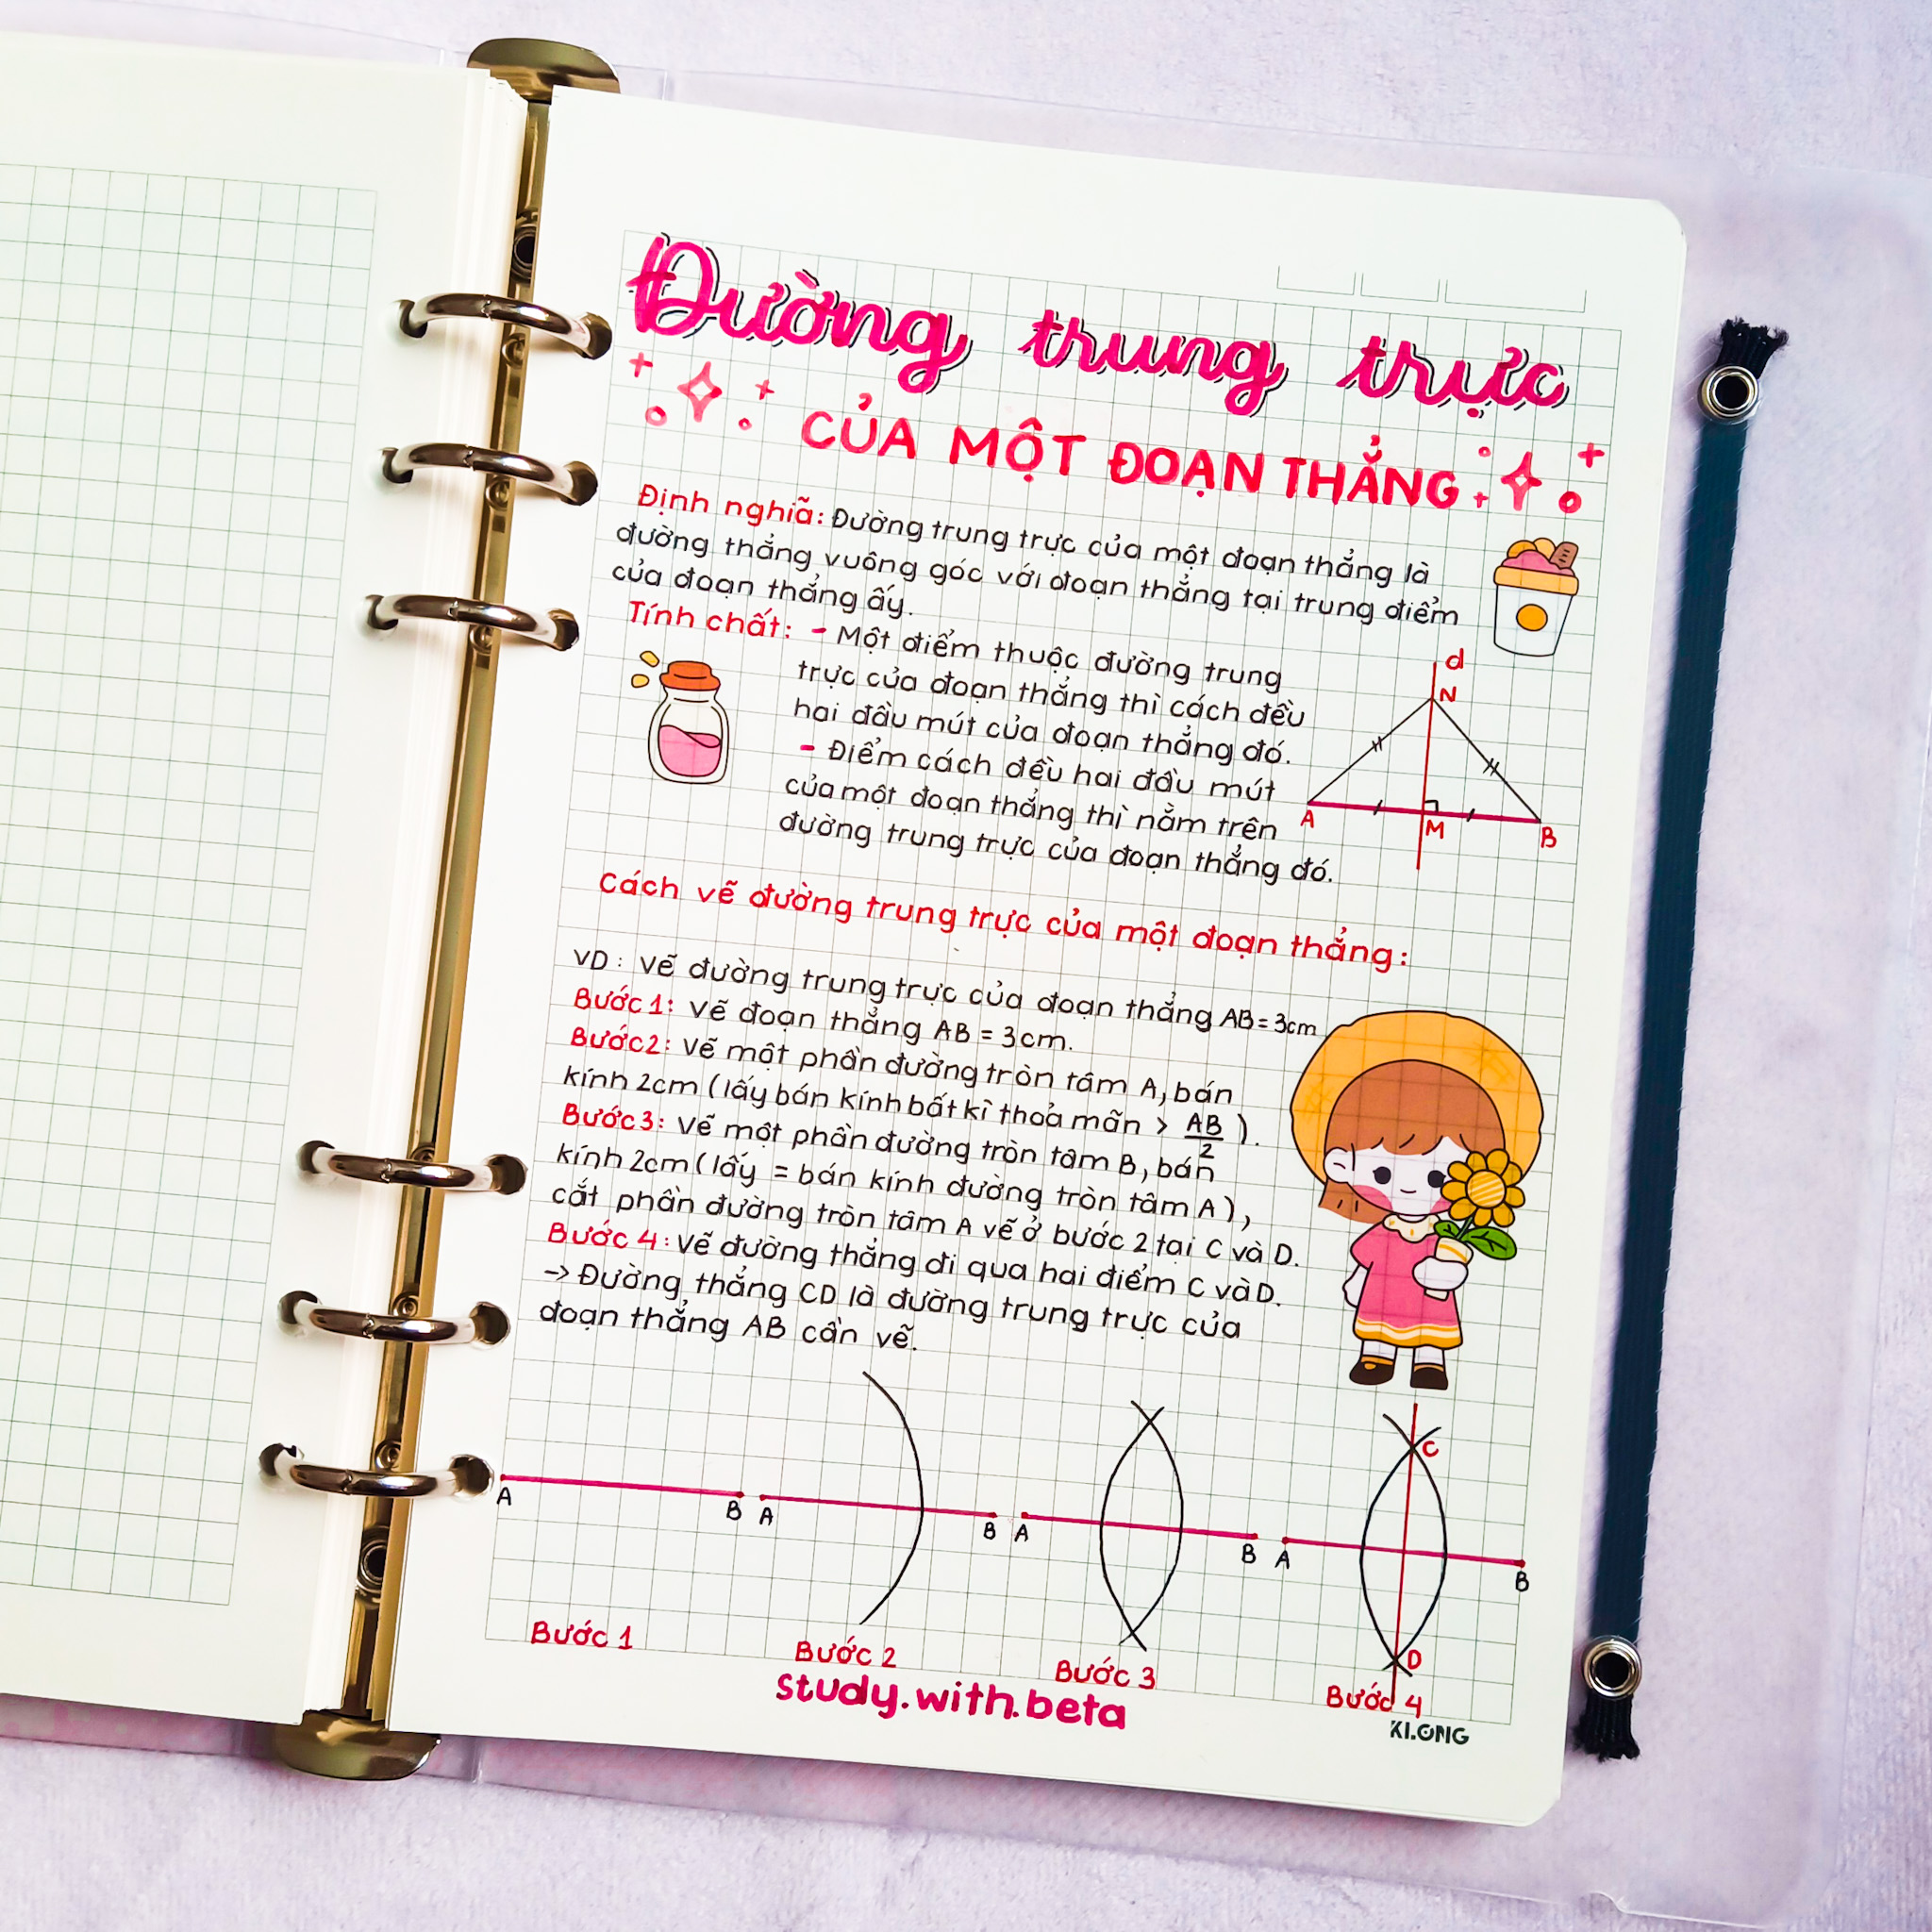 Đường trung trực
CỦA MỘT ĐOẠN THẲNG
Định nghĩa: Đường trung trực của một đoạn thẳng là
đường thẳng vuông góc với đoạn thẳng tại trung điểm
của đoạn thẳng ấy.
Tính chất: - Một điểm thuộc đường trung
trực của đoạn thẳng thì cách đều
hai đầu mút của đoạn thẳng đó.
- Điểm cách đều hai đầu mút
của một đoạn thẳng thì nằm trên
đường trung trực của đoạn thẳng đó.
d
N
A
M
B
Cách vẽ đường trung trực của một đoạn thẳng:
VD: Vẽ đường trung trực của đoạn thẳng AB = 3cm
Bước 1: Vẽ đoạn thẳng AB = 3cm.
Bước 2: Vẽ một phần đường tròn tâm A, bán
kính 2cm (lấy bán kính bất kì thoả mãn > AB/2).
Bước 3: Vẽ một phần đường tròn tâm B, bán
kính 2cm (lấy = bán kính đường tròn tâm A),
cắt phần đường tròn tâm A vẽ ở bước 2 tại C và D.
Bước 4: Vẽ đường thẳng đi qua hai điểm C và D.
-> Đường thẳng CD là đường trung trực của
đoạn thẳng AB cần vẽ.
A B
Bước 1
A B
Bước 2
A B
Bước 3
C
A B
D
Bước 4
study.with.beta
KLONG